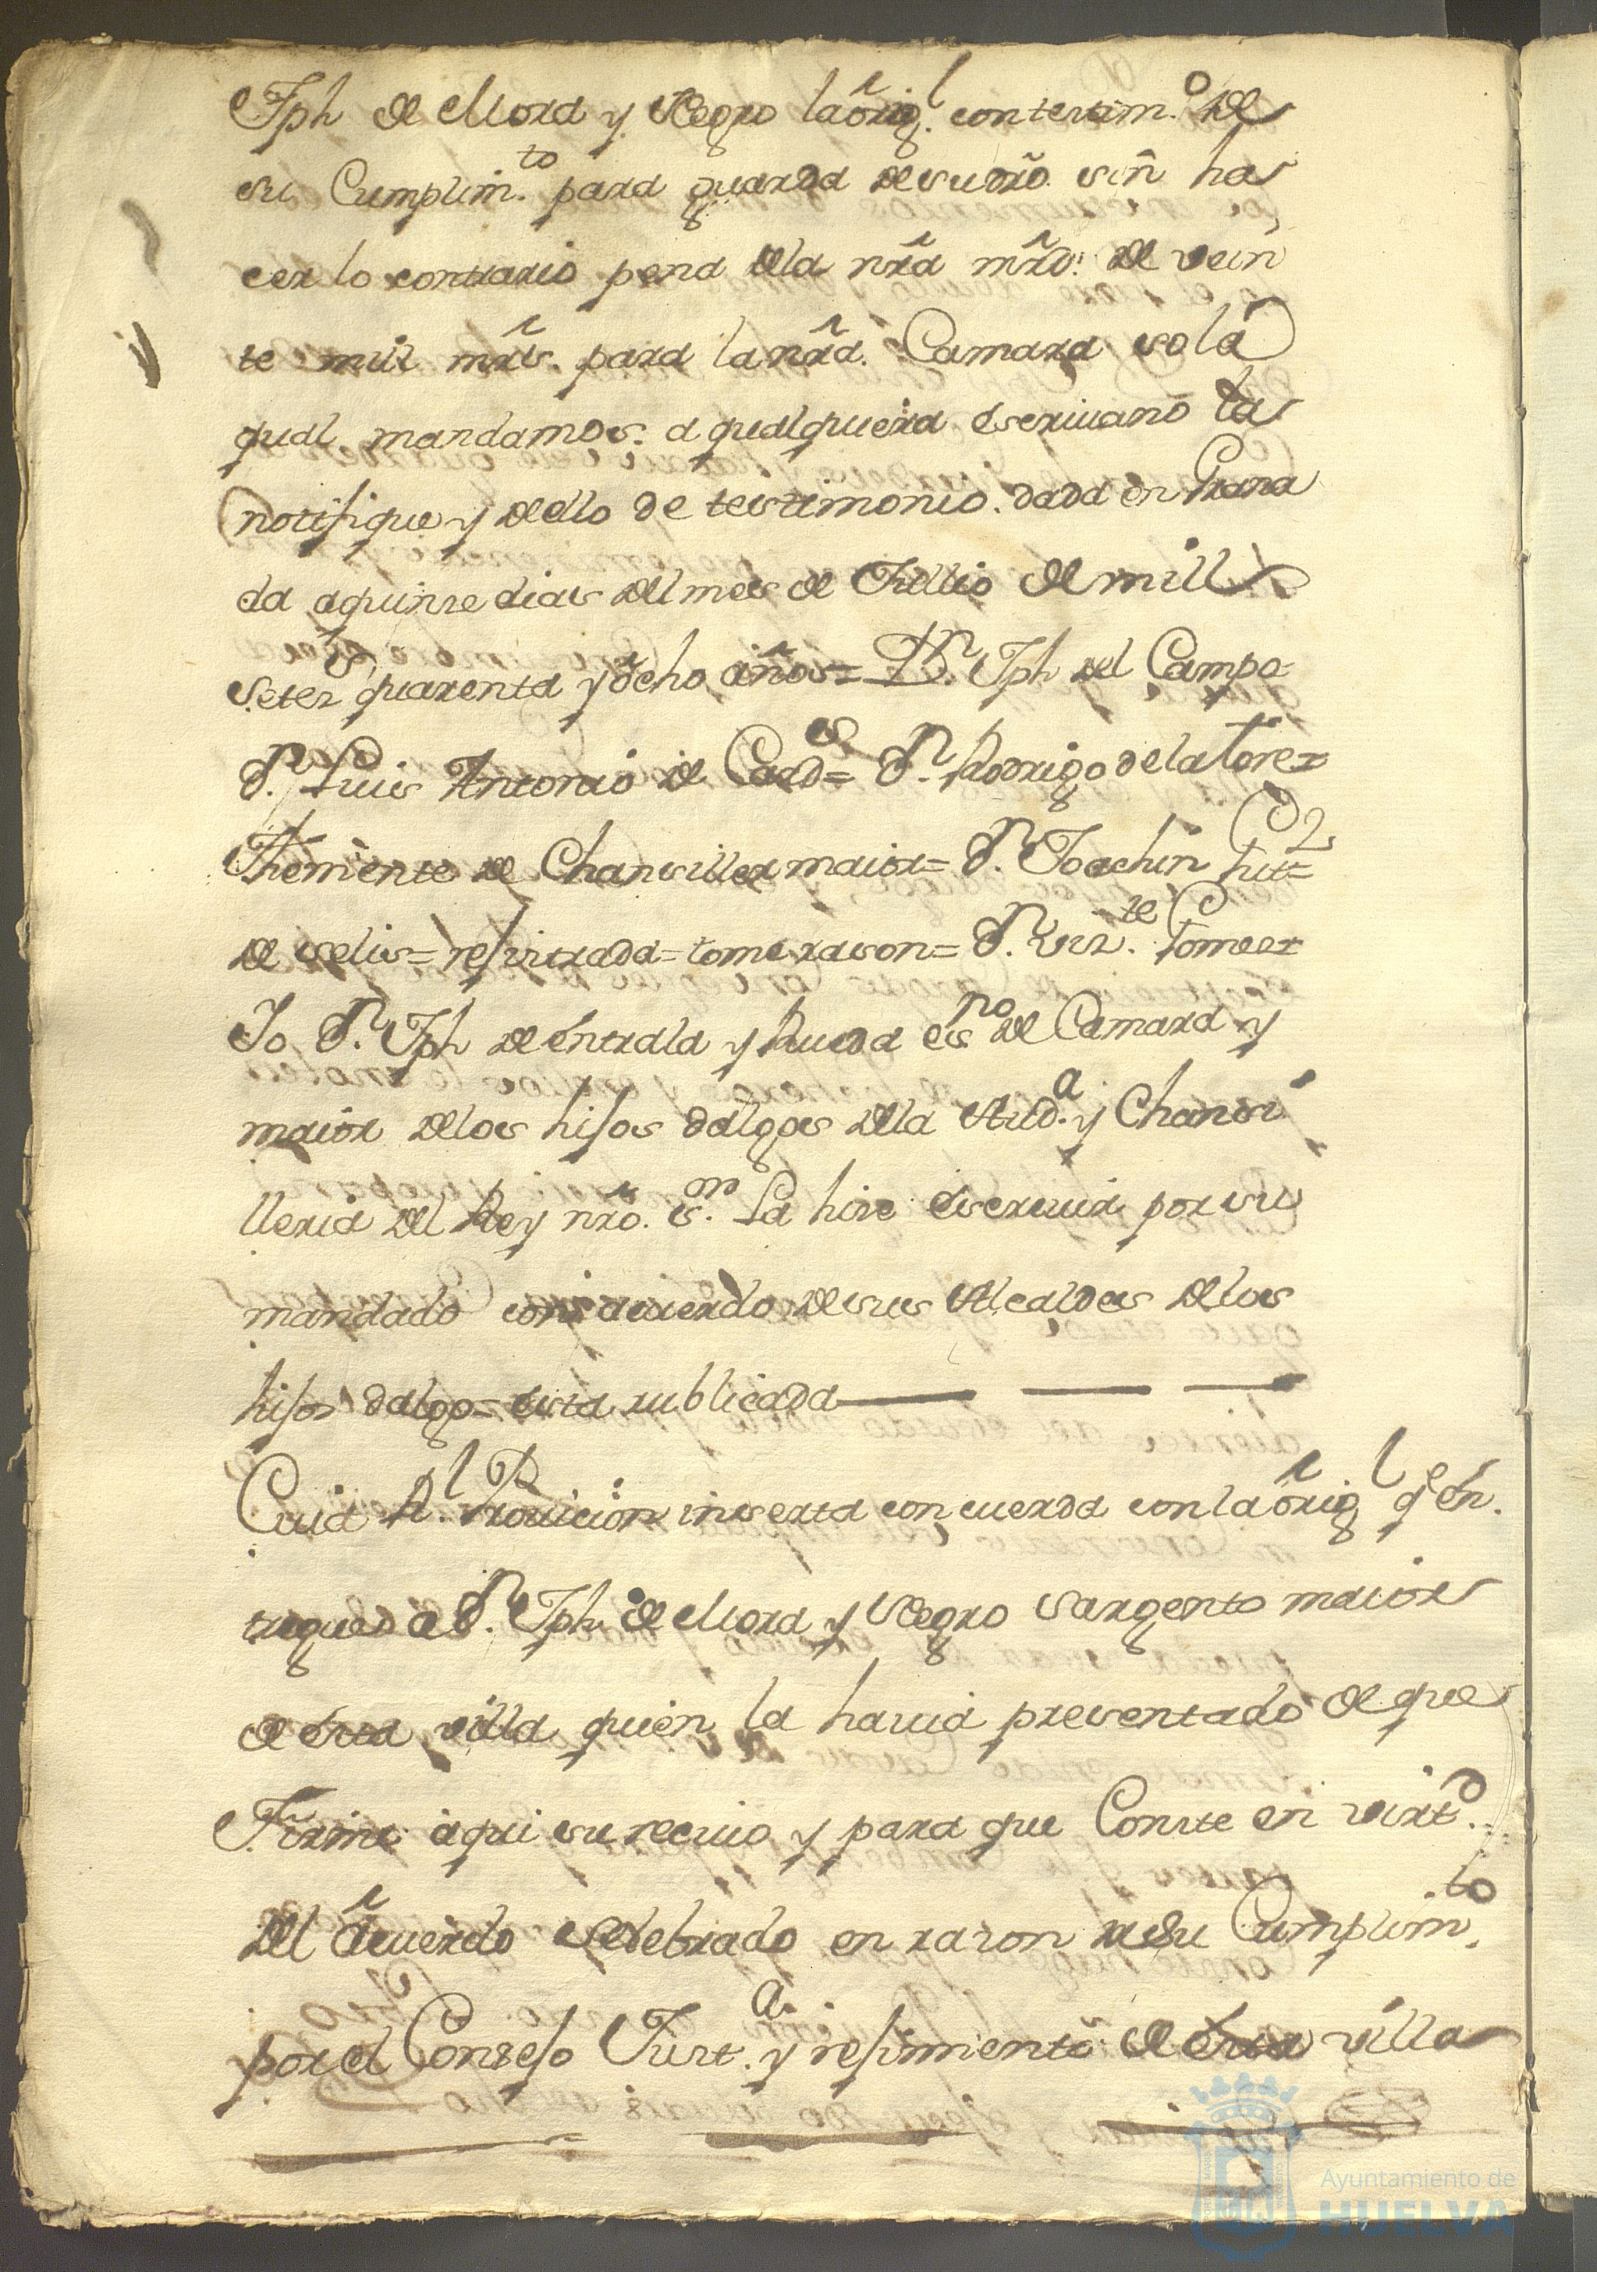 Jph de Mora y Negro la orig.l con testim.o de
su Cumplim.to para guarda de su dro. sin ha
cer lo contrario pena de la nra mrd. de vein
te mill mrs. para la nra. Camara so la
qual mandamos a qualquiera escriuano la
notifique y dello de testimonio. dada en Grana
da a quinse dias del mes de Jullio de mill
setes.s quarenta y ocho años = D.n Jph del Campo
D.n Luis Antonio de = D.n Rodrigo de la Torre =
Theniente de Chansiller maior = D.n Joachin
de selis = resistrada = tome rason = D.n Viz.te Gomes =
Io D.n Jph de entrala y Rueda es.no de Camara y
maior de los hisos dalgos de la Aud.a y Chansi
lleria del Rey nro. s.or La hise escriuir por su
mandado con acuerdo de sus Alcaldes de los
hisos dalgo = esta rublicada
Cuia R.l Prouicion inserta concuerda con la orig.l q.e en
tregue a D.n Jph de Mora y Negro sargento maior
de esta villa quien la hauia presentado de que
Firmo aqui su reciuo y para que Conste en virt.d
del acuerdo selebrado en razon de su Cumplim.to
por el Consejo Just.a y resimiento de esta villa
Ayuntamiento de
HUELVA